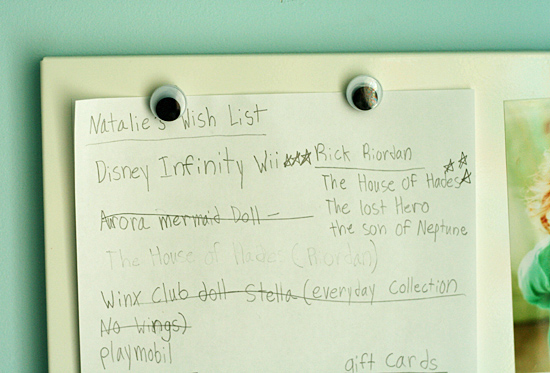 Natalie's Wish List
Disney Infinity Wii ☆☆☆
Rick Riordan
The House of Hades ☆☆☆
The lost Hero
the son of Neptune
Arora mermaid Doll -
The House of Hades (Riordan)
Winx club doll Stella (everyday Collection
No Wings)
playmobil
gift Cards